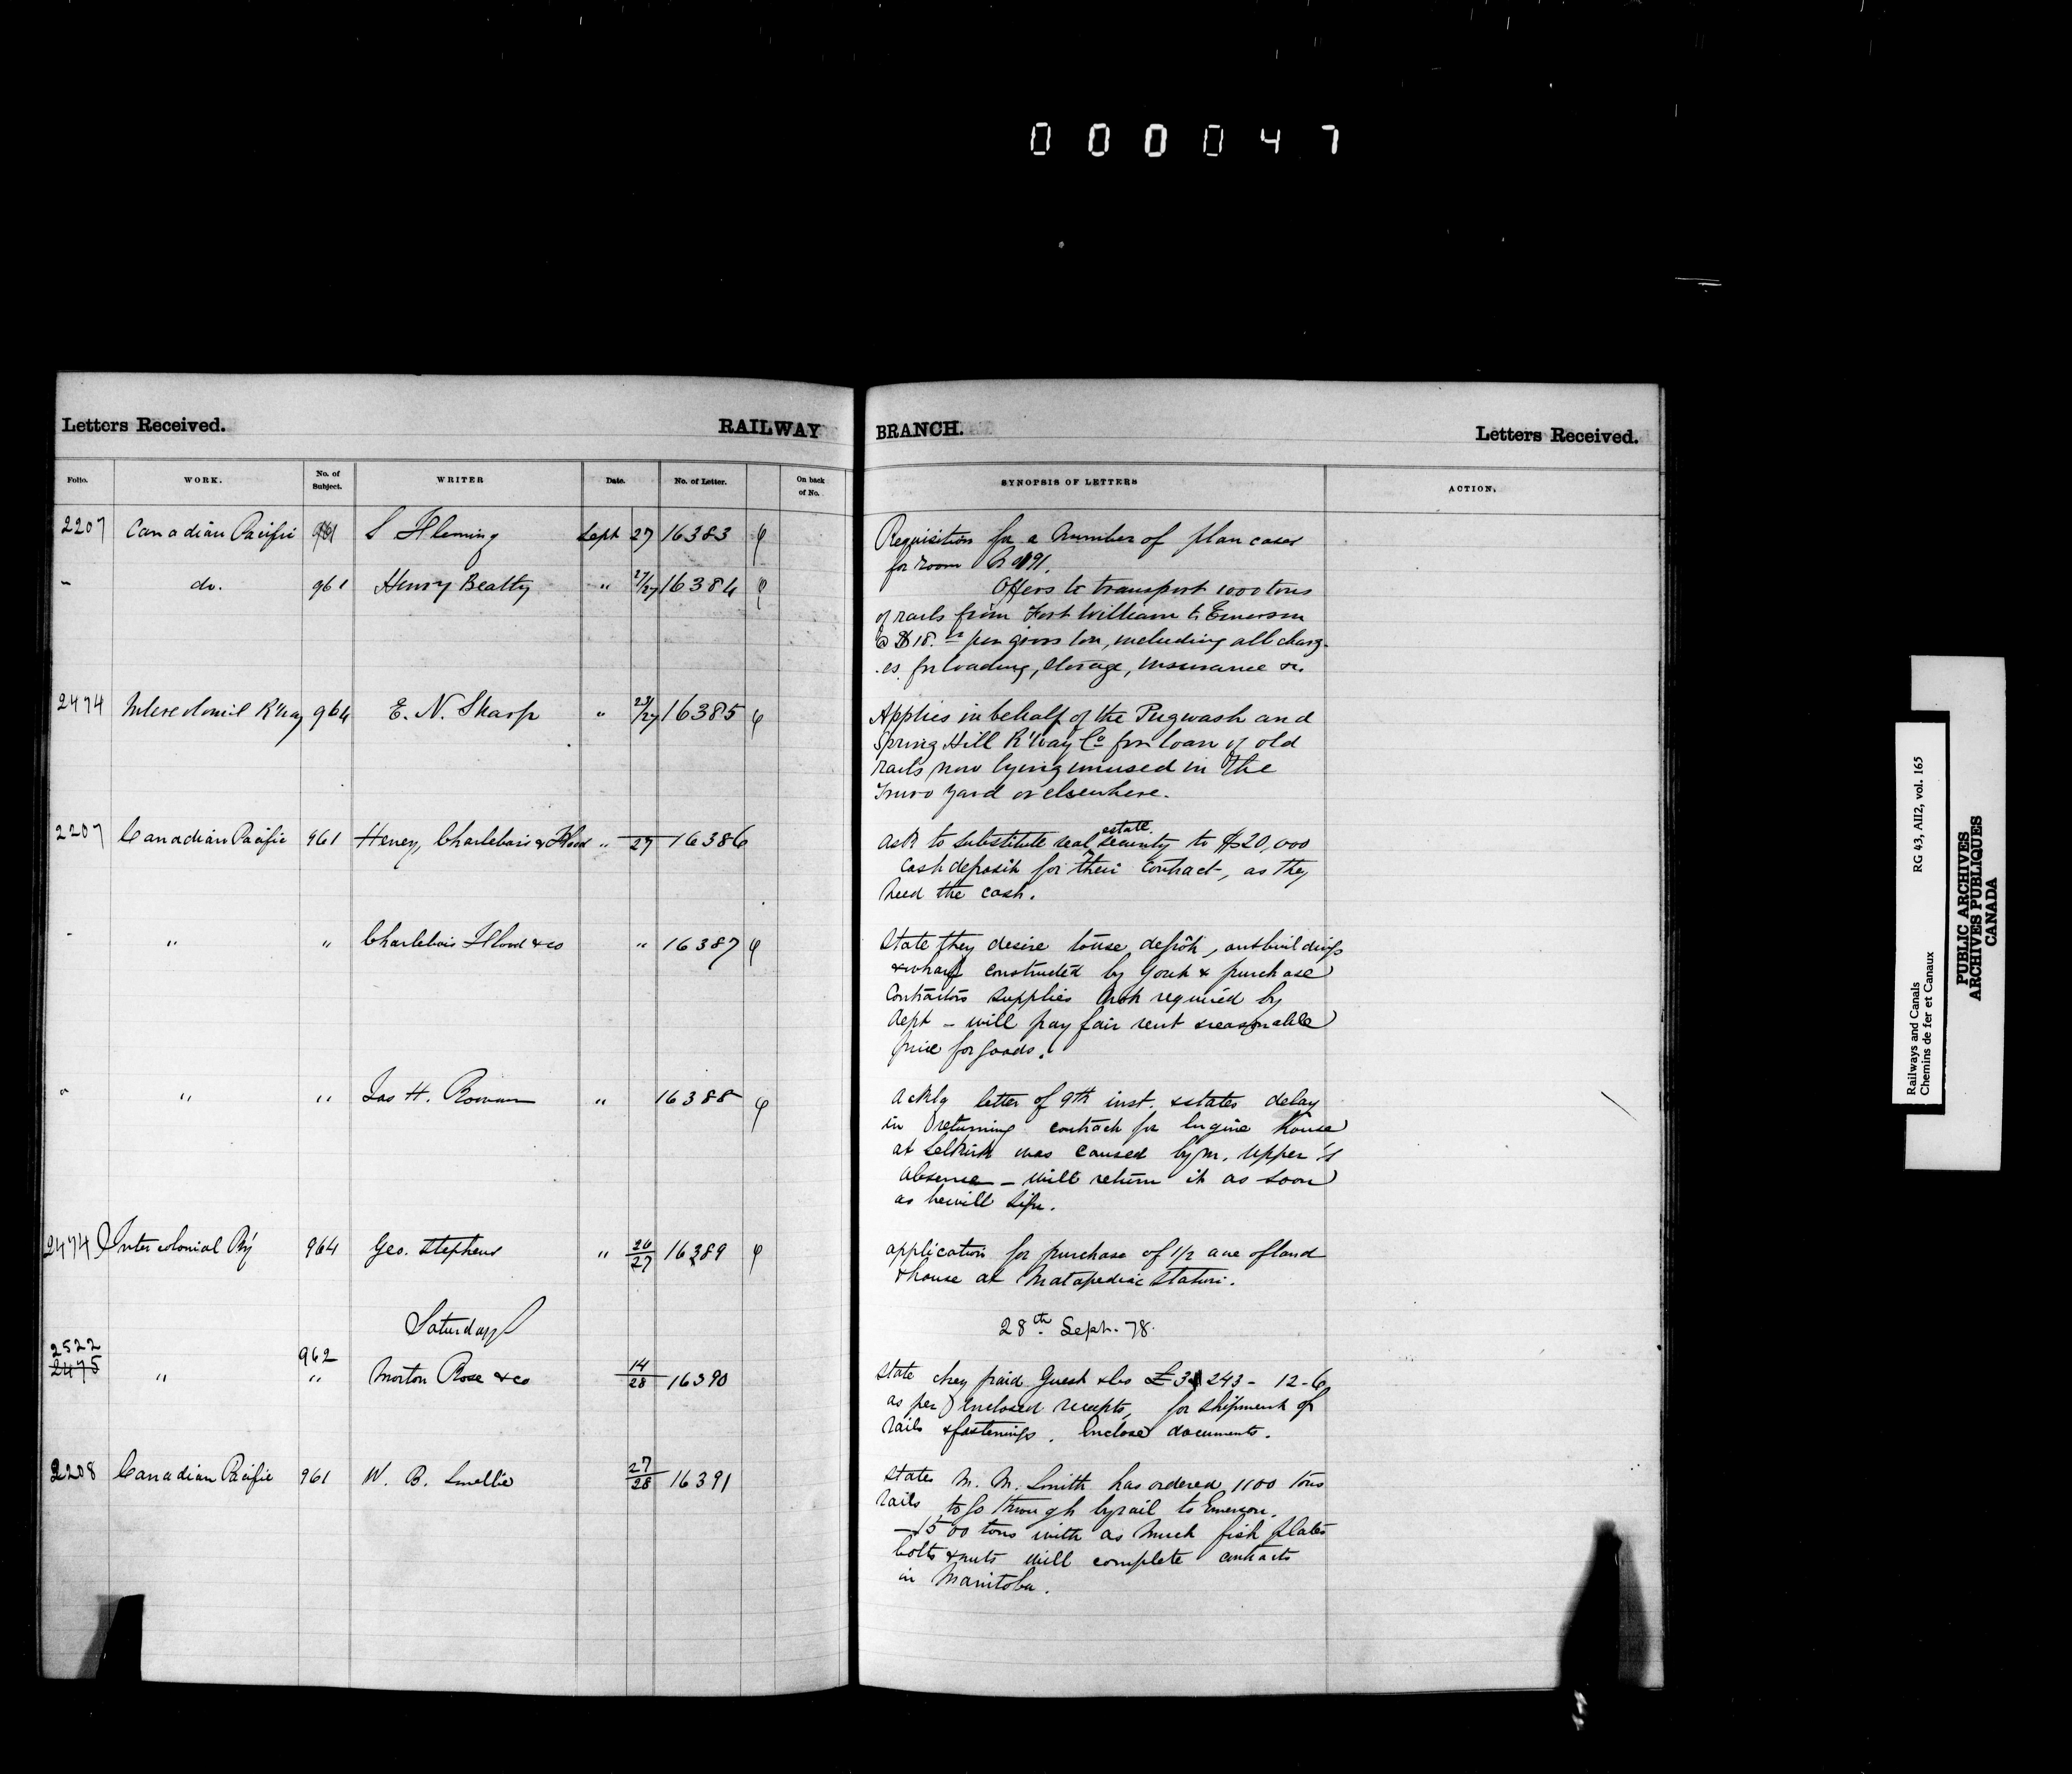 000047
Letters Received. RAILWAY BRANCH. Letters Received.
Folio. WORK. No. of Subject. WRITER Date. No. of Letter. On back of No. SYNOPSIS OF LETTERS ACTION.
2207 Canadian Pacific 961 S Fleming Sept 27 16383 Requisition for a number of plan cases
for room
- do. 961 Henry Beatty " 27/27 16384 Offers to transport 1000 tons
of rails from Fort William to Emerson
@ $18. per gross ton, including all charg-
es for loading, storage, insurance &c.
2474 Intercolonial R'way 964 E. N. Sharp " 23/27 16385 Applies in behalf of the Pugwash and
Spring Hill R'Way Co for loan of old
rails now lying unused in the
Truro Yard or elsewhere.
2207 Canadian Pacific 961 Heney, Charlebois & Flood " 27 16386 Ask to substitute real estate security to $20,000
cash deposit for their contract, as they
need the cash.
- " " Charlebois Flood & co " 16387 State they desire to use depôt, outbuildings
& wharf constructed by Govt & purchase
Contractors supplies not required by
Dept - will pay fair rent & reasonable
price for goods.
" " " Jas H. Rowan " 16388 Ackg letter of 9th inst. & states delay
in returning contract for Engine house
at Selkirk was caused by Mr. Upper's
absence - will return it as soon
as he will sign.
2474 Intercolonial Ry 964 Geo. Stephens " 26/27 16389 application for purchase of 1/2 acre of land
& house at Matapediac Station.
Saturday 28th Sept. 78.
2522
2475 " 962 " Morton Rose & co 14/28 16390 State they paid Guest & Co £31243 - 12 - 6
as per enclosed receipts, for shipment of
rails & fastenings. Enclose documents.
2208 Canadian Pacific 961 W. B. Smellie 27/28 16391 States M. M. Smith has ordered 1100 tons
rails to go through by rail to Emerson.
- 1500 tons with as much fish plates
bolts & nuts will complete contracts
in Manitoba.
Railways and Canals RG 43, AII2, vol. 165
Chemins de fer et Canaux
PUBLIC ARCHIVES
ARCHIVES PUBLIQUES
CANADA